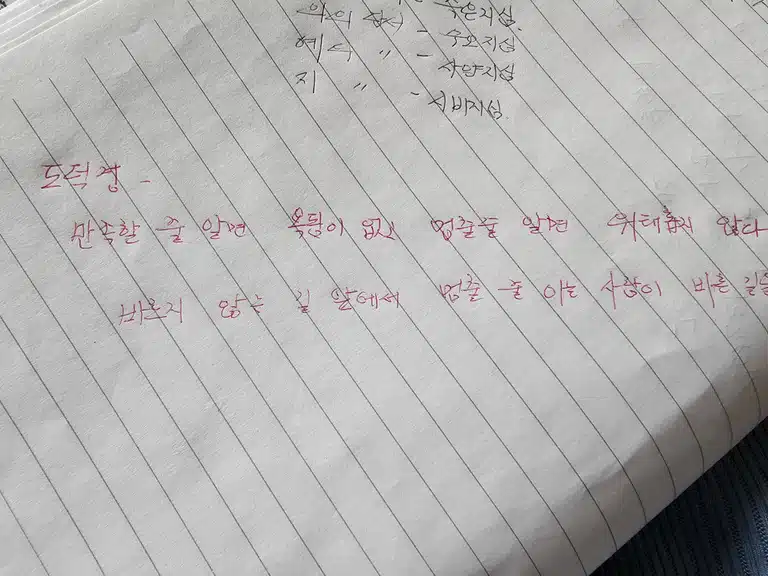 의의 정서 측은지심.
예의 〃 - 수오지심
지 〃 - 사양지심
- 시비지심.
도덕경 -
만족할 줄 알면 욕됨이 없고 멈출줄 알면 위태롭지 않다
바르지 않는 길 앞에서 멈출 줄 아는 사람이 바른 길을